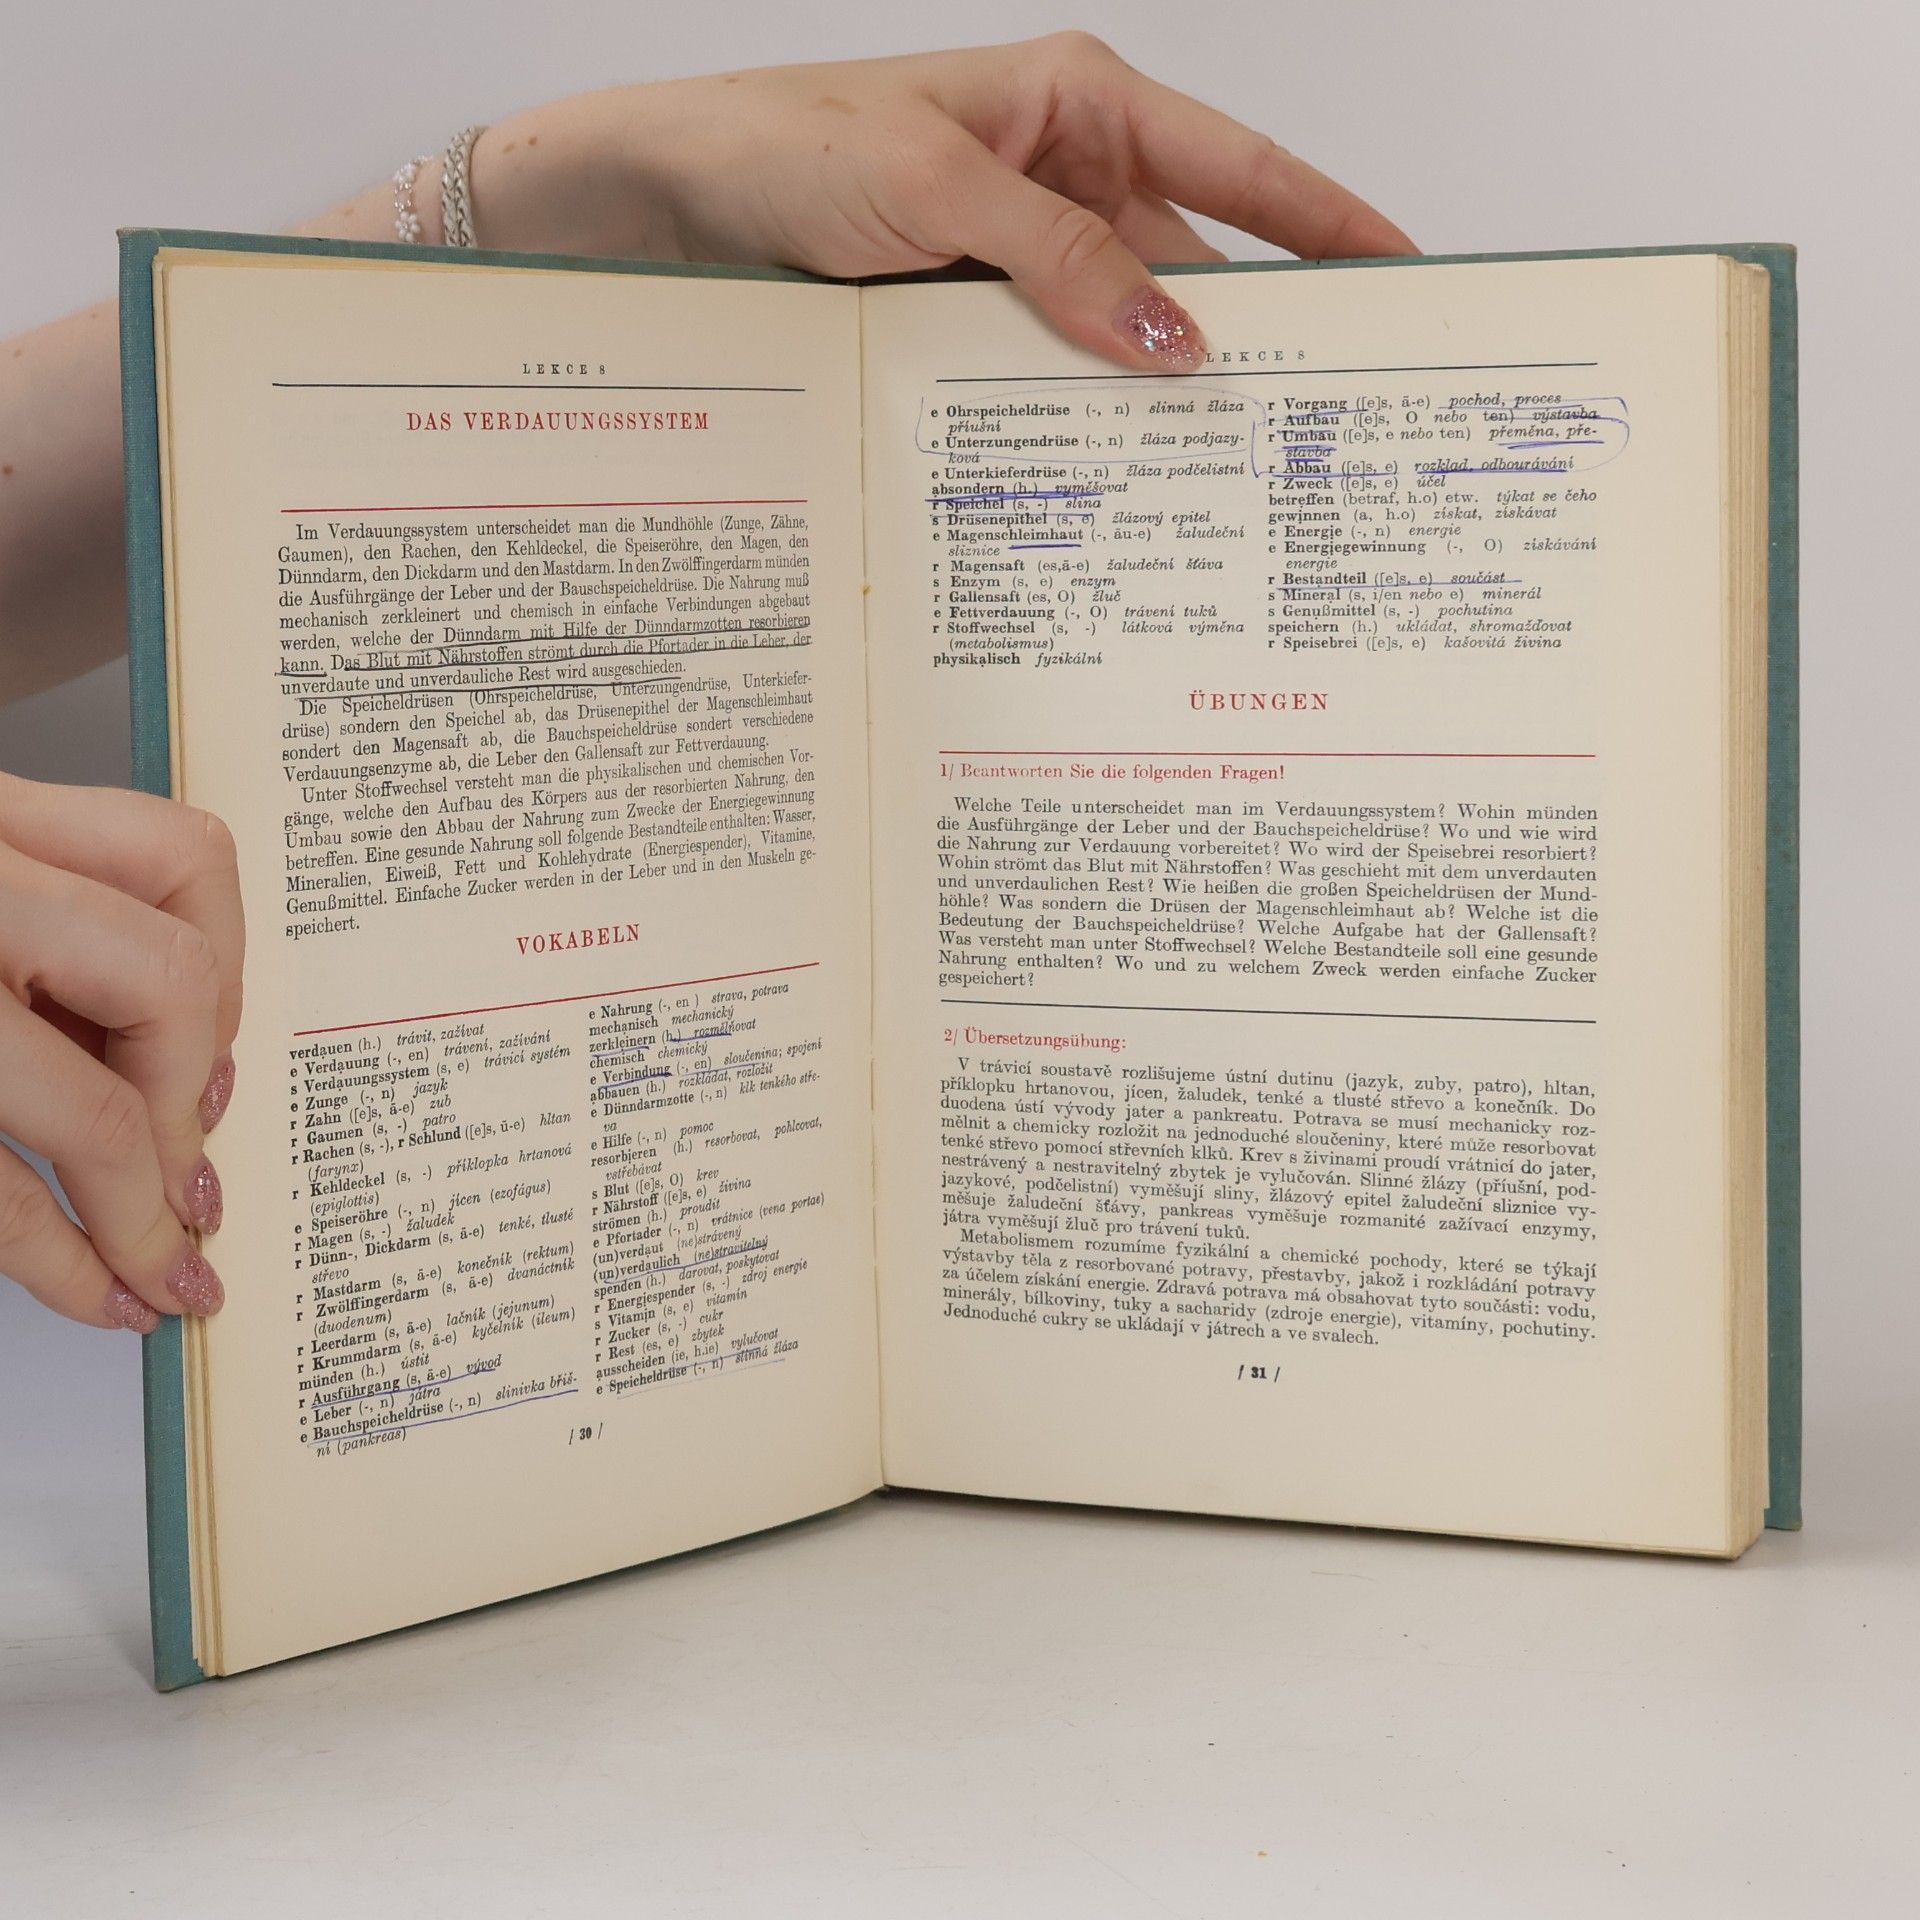 LEKCE 8
DAS VERDAUUNGSSYSTEM
Im Verdauungssystem unterscheidet man die Mundhöhle (Zunge, Zähne,
Gaumen), den Rachen, den Kehldeckel, die Speiseröhre, den Magen, den
Dünndarm, den Dickdarm und den Mastdarm. In den Zwölffingerdarm münden
die Ausführgänge der Leber und der Bauschspeicheldrüse. Die Nahrung muß
mechanisch zerkleinert und chemisch in einfache Verbindungen abgebaut
werden, welche der Dünndarm mit Hilfe der Dünndarmzotten resorbieren
kann. Das Blut mit Nährstoffen strömt durch die Pfortader in die Leber, der
unverdaute und unverdauliche Rest wird ausgeschieden.
Die Speicheldrüsen (Ohrspeicheldrüse, Unterzungendrüse, Unterkiefer-
drüse) sondern den Speichel ab, das Drüsenepithel der Magenschleimhaut
sondert den Magensaft ab, die Bauchspeicheldrüse sondert verschiedene
Verdauungsenzyme ab, die Leber den Gallensaft zur Fettverdauung.
Unter Stoffwechsel versteht man die physikalischen und chemischen Vor-
gänge, welche den Aufbau des Körpers aus der resorbierten Nahrung, den
Umbau sowie den Abbau der Nahrung zum Zwecke der Energiegewinnung
betreffen. Eine gesunde Nahrung soll folgende Bestandteile enthalten: Wasser,
Mineralien, Eiweiß, Fett und Kohlehydrate (Energiespender), Vitamine,
Genußmittel. Einfache Zucker werden in der Leber und in den Muskeln ge-
speichert.
VOKABELN
verdauen (h.) trávit, zažívat
e Verdauung (-, en) trávení, zažívání
s Verdauungssystem (s, e) trávicí systém
e Zunge (-, n) jazyk
r Zahn ([e]s, ä-e) zub
r Gaumen (s, -) patro
r Rachen (s, -), r Schlund ([e]s, ü-e) hltan
(farynx)
r Kehldeckel (s, -) příklopka hrtanová
(epiglottis)
e Speiseröhre (-, n) jícen (ezofágus)
r Magen (s, -) žaludek
r Dünn-, Dickdarm (s, ä-e) tenké, tlusté
střevo
r Mastdarm (s, ä-e) konečník (rektum)
r Zwölffingerdarm (s, ä-e) dvanáctník
(duodenum)
r Leerdarm (s, ä-e) lačník (jejunum)
r Krummdarm (s, ä-e) kyčelník (ileum)
münden (h.) ústit
r Ausführgang (s, ä-e) vývod
e Leber (-, n) játra
e Bauchspeicheldrüse (-, n) slinivka břiš-
ní (pankreas)
e Nahrung (-, en ) strava, potrava
mechanisch mechanický
zerkleinern (h.) rozmělňovat
chemisch chemický
e Verbindung (-, en) sloučenina; spojení
abbauen (h.) rozkládat, rozložit
e Dünndarmzotte (-, n) klk tenkého stře-
va
e Hilfe (-, n) pomoc
resorbieren (h.) resorbovat, pohlcovat,
vstřebávat
s Blut ([e]s, O) krev
r Nährstoff ([e]s, e) živina
strömen (h.) proudit
e Pfortader (-, n) vrátnice (vena portae)
(un)verdaut (ne)strávený
(un)verdaulich (ne)stravitelný
spenden (h.) darovat, poskytovat
r Energiespender (s, -) zdroj energie
s Vitamin (s, e) vitamín
r Zucker (s, -) cukr
r Rest (es, e) zbytek
ausscheiden (ie, h.ie) vylučovat
e Speicheldrüse (-, n) slinná žláza
/ 30 /
LEKCE 8
e Ohrspeicheldrüse (-, n) slinná žláza
příušní
e Unterzungendrüse (-, n) žláza podjazy-
ková
e Unterkieferdrüse (-, n) žláza podčelistní
absondern (h.) vyměšovat
r Speichel (s, -) slina
s Drüsenepithel (s, e) žlázový epitel
e Magenschleimhaut (-, äu-e) žaludeční
sliznice
r Magensaft (es,ä-e) žaludeční šťáva
s Enzym (s, e) enzym
r Gallensaft (es, O) žluč
e Fettverdauung (-, O) trávení tuků
r Stoffwechsel (s, -) látková výměna
(metabolismus)
physikalisch fyzikální
r Vorgang ([e]s, ä-e) pochod, proces
r Aufbau ([e]s, O nebo ten) výstavba
r Umbau ([e]s, e nebo ten) přeměna, pře-
stavba
r Abbau ([e]s, e) rozklad, odbourávání
r Zweck ([e]s, e) účel
betreffen (betraf, h.o) etw. týkat se čeho
gewinnen (a, h.o) získat, získávat
e Energie (-, n) energie
e Energiegewinnung (-, O) získávání
energie
r Bestandteil ([e]s, e) součást
s Mineral (s, i/en nebo e) minerál
s Genußmittel (s, -) pochutina
speichern (h.) ukládat, shromažďovat
r Speisebrei ([e]s, e) kašovitá živina
ÜBUNGEN
1/ Beantworten Sie die folgenden Fragen!
Welche Teile unterscheidet man im Verdauungssystem? Wohin münden
die Ausführgänge der Leber und der Bauchspeicheldrüse? Wo und wie wird
die Nahrung zur Verdauung vorbereitet? Wo wird der Speisebrei resorbiert?
Wohin strömt das Blut mit Nährstoffen? Was geschieht mit dem unverdauten
und unverdaulichen Rest? Wie heißen die großen Speicheldrüsen der Mund-
höhle? Was sondern die Drüsen der Magenschleimhaut ab? Welche ist die
Bedeutung der Bauchspeicheldrüse? Welche Aufgabe hat der Gallensaft?
Was versteht man unter Stoffwechsel? Welche Bestandteile soll eine gesunde
Nahrung enthalten? Wo und zu welchem Zweck werden einfache Zucker
gespeichert?
2/ Übersetzungsübung:
V trávicí soustavě rozlišujeme ústní dutinu (jazyk, zuby, patro), hltan,
příklopku hrtanovou, jícen, žaludek, tenké a tlusté střevo a konečník. Do
duodena ústí vývody jater a pankreatu. Potrava se musí mechanicky roz-
mělnit a chemicky rozložit na jednoduché sloučeniny, které může resorbovat
tenké střevo pomocí střevních klků. Krev s živinami proudí vrátnicí do jater,
nestrávený a nestravitelný zbytek je vylučován. Slinné žlázy (příušní, pod-
jazykové, podčelistní) vyměšují sliny, žlázový epitel žaludeční sliznice vy-
měšuje žaludeční šťávy, pankreas vyměšuje rozmanité zažívací enzymy,
játra vyměšují žluč pro trávení tuků.
Metabolismem rozumíme fyzikální a chemické pochody, které se týkají
výstavby těla z resorbované potravy, přestavby, jakož i rozkládání potravy
za účelem získání energie. Zdravá potrava má obsahovat tyto součásti: vodu,
minerály, bílkoviny, tuky a sacharidy (zdroje energie), vitamíny, pochutiny.
Jednoduché cukry se ukládají v játrech a ve svalech.
/ 31 /